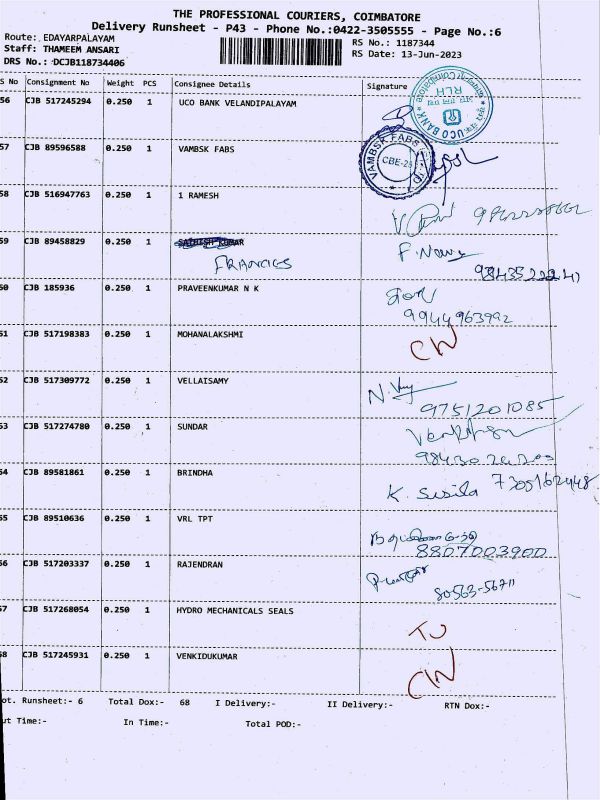 THE PROFESSIONAL COURIERS, COIMBATORE
Delivery Runsheet - P43 - Phone No.:0422-3505555 - Page No.:6
Route: EDAYARPALAYAM
RS No.: 1187344
Staff: THAMEEM ANSARI
RS Date: 13-Jun-2023
DRS No.: DCJB118734406
S No Consignment No Weight PCS Consignee Details Signature
56 CJB 517245294 0.250 1 UCO BANK VELANDIPALAYAM
UCO BANK
RLH
57 CJB 89596588 0.250 1 VAMBSK FABS
VAMBSK FABS
CBE-25
58 CJB 516947763 0.250 1 1 RAMESH
59 CJB 89458829 0.250 1 SATHISH KUMAR
FRANCIES
50 CJB 185936 0.250 1 PRAVEENKUMAR N K
9944963992
51 CJB 517198383 0.250 1 MOHANALAKSHMI
CN
52 CJB 517309772 0.250 1 VELLAISAMY
9751201085
53 CJB 517274780 0.250 1 SUNDAR
54 CJB 89581861 0.250 1 BRINDHA
K. Susila 7305162448
55 CJB 89510636 0.250 1 VRL TPT
8807003900
56 CJB 517203337 0.250 1 RAJENDRAN
80563-56711
57 CJB 517268054 0.250 1 HYDRO MECHANICALS SEALS
58 CJB 517245931 0.250 1 VENKIDUKUMAR
CN
ot. Runsheet:- 6 Total Dox:- 68 I Delivery:- II Delivery:- RTN Dox:-
ut Time:- In Time:- Total POD:-